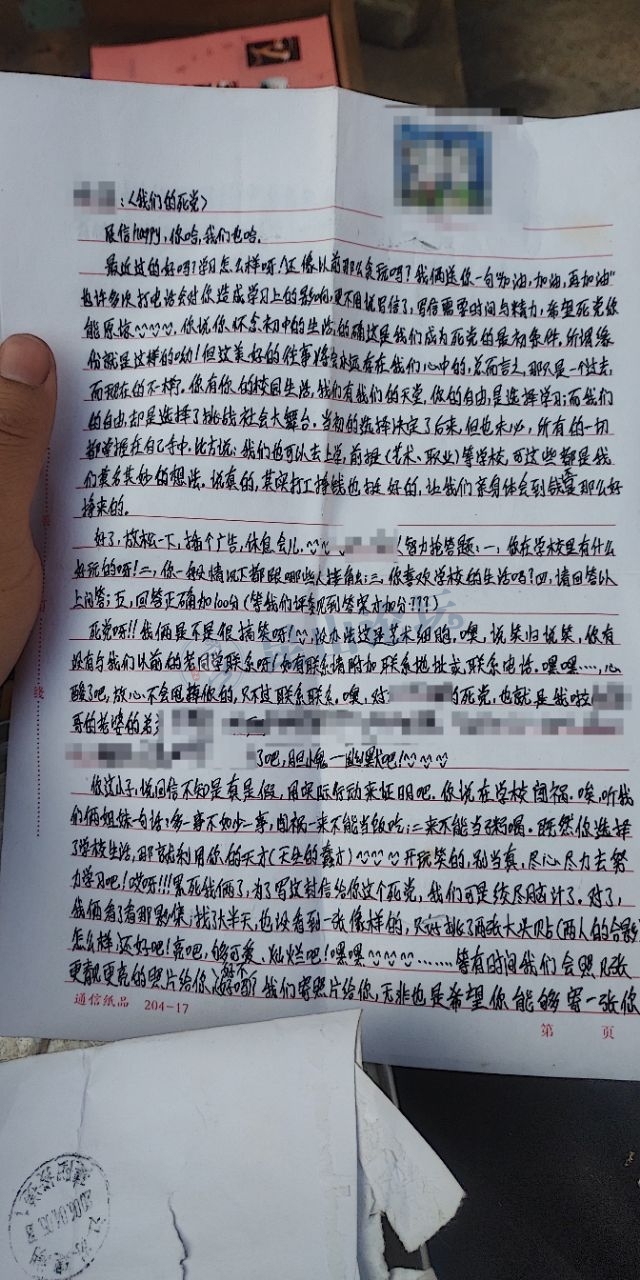 ：〈我们的死党〉
展信happy，你哈，我们也哈．
最近过的好吗？学习怎么样呀，还像以前那么贪玩吗？我俩送你一句“加油，加油，再加油”
也许多次打电话会对你造成学习上的影响，更不用说写信了，写信需要时间与精力，希望死党你
能原谅．你说你怀念初中的生活，的确这是我们成为死党的最初条件，所谓缘
份就是这样的呦！但这美好的往事将会永远存在我们心中的，总而言之，那只是一个过去，
而现在的不样．你有你的校园生活，我们有我们的天堂，你的自由，是选择学习；而我们
的自由，却是选择了挑战社会大舞台．当初的选择决定了后来，但也未必，所有的一切
都掌握在自己手中．比方说：我们也可以去上学，前提（艺术、职业）等学校，可这些都是我
们莫名其妙的想法．说真的，其实打工挣钱也挺好的，让我们亲身体会到钱是那么好
挣来的．
好了，放松一下，插个广告，休息会儿．〈智力抢答题：一，你在学校里有什么
好玩的呀！二，你一般情况下都跟哪些人接触；三，你喜欢学校的生活吗？四，请回答以
上问答；五，回答正确加100分（等我们评委见到答案才加分？？？）
死党呀！！我俩是不是很搞笑呀！没办法这是艺术细胞，噢，说笑归说笑，你有
没有与我们以前的老同学联系呀！如有联系请附加联系地址或联系电话．嘿嘿……，心
醒了吧，放心不会甩掉你的，只不过联系联系．噢，对的死党，也就是我啦
哥的老婆的弟
了吧，胆小鬼一幽默吧！
你这小子，说回信不知是真是假，用实际行动来证明吧．你说在学校闯祸．唉，听我
们俩姐妹一句话：多一事不如少一事，闯祸一来不能当饭吃，二来不能当粥喝．既然你选择
了学校生活，那就利用你的天才（天生的蠢才）开玩笑的，别当真，尽心尽力去努
力学习吧！哎呀！！！累死我俩了，为了写这封信给你这个死党，我们可是绞尽脑汁了．对了，
我俩看了看那影集，找了半天，也没看到一张像样的，只好我了两张大头贴（两人的合影）
怎么样，还好吧！亮吧，够可爱、灿烂吧！嘿嘿……．等有时间我们会照几张
更靓更亮的照片给你，好不 我们寄照片给你，无非也是希望你能够寄一张你
通信纸品 204-17
第 页